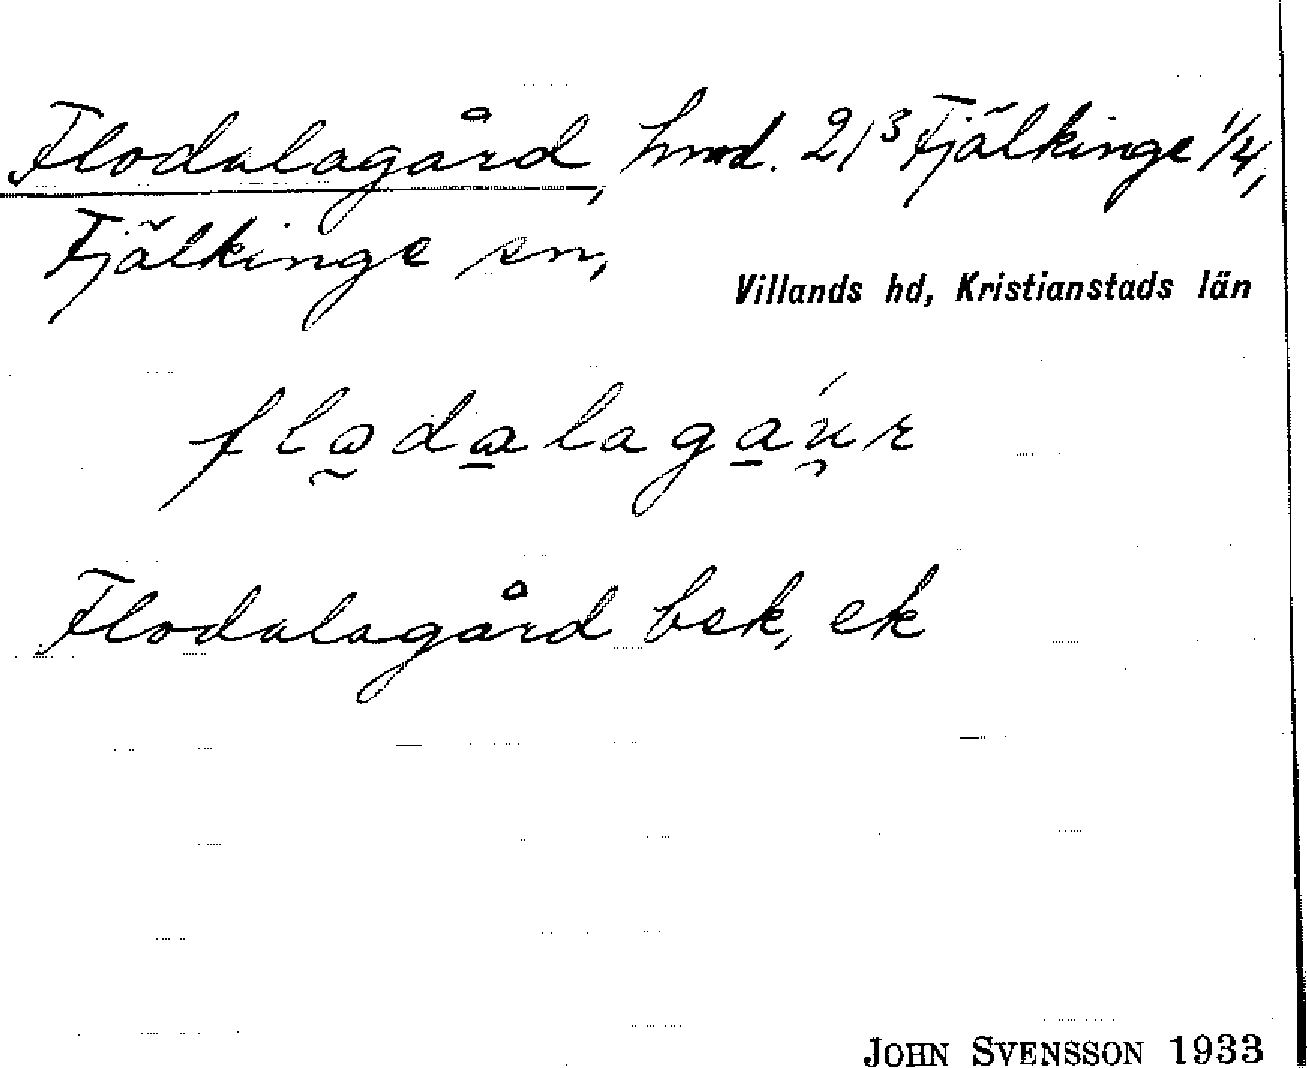 Flodalagård, hmd. 21³ Fjälkinge 1/4,
Fjälkinge sn,
Villands hd, Kristianstads län
Flodalagård bek, ek
JOHN SVENSSON 1933